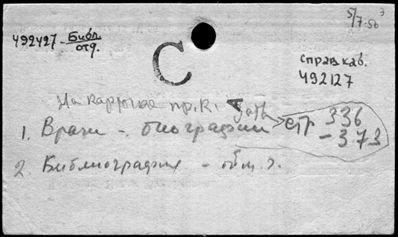 5/7-56
492427 - Библ. отд.
С
справ каб.
492127
На карточке пр. к.
1. Врачи - биографии стр 336
- 373
2. Библиография - общ.